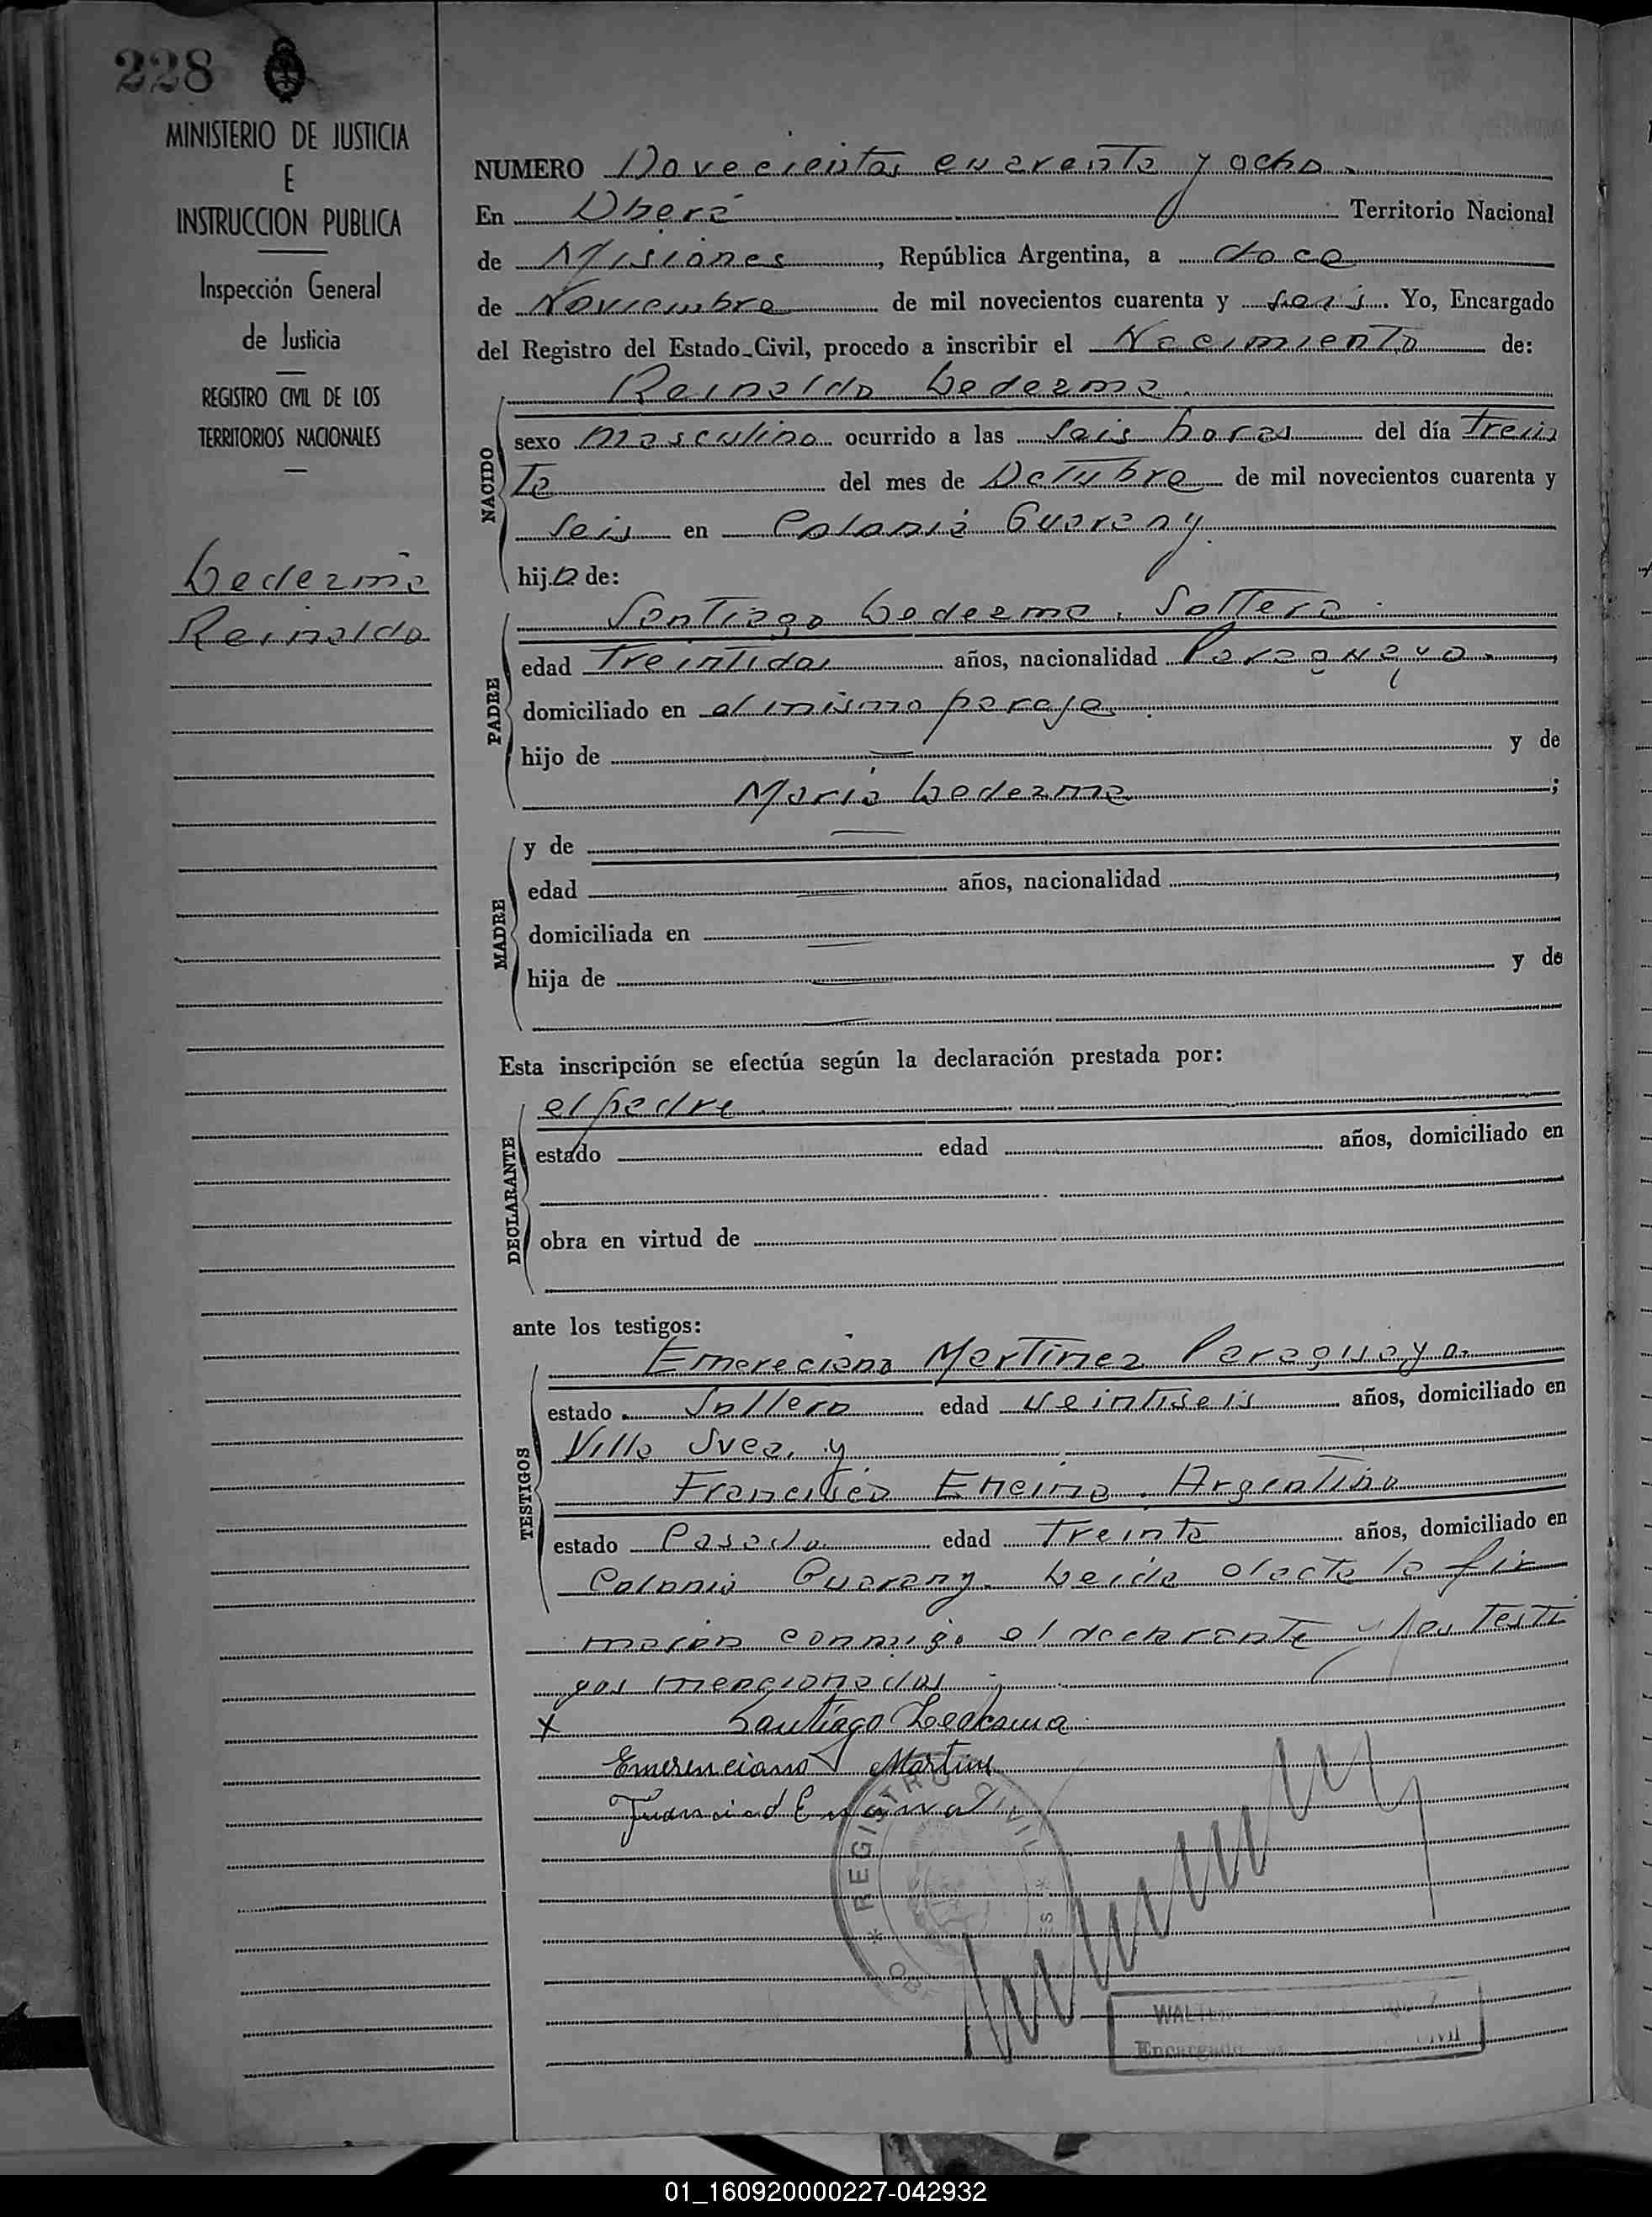 228
MINISTERIO DE JUSTICIA
E
INSTRUCCION PUBLICA
Inspección General
de Justicia
REGISTRO CIVIL DE LOS
TERRITORIOS NACIONALES
Ledezma
Reinaldo
NUMERO Novecientos cuarenta y ocho.
En Oberá Territorio Nacional
de Misiones, República Argentina, a doce
de Noviembre de mil novecientos cuarenta y seis. Yo, Encargado
del Registro del Estado Civil, procedo a inscribir el Nacimiento de:
NACIDO
Reinaldo Ledezma.
sexo masculino ocurrido a las seis horas del día Trein
Ta del mes de Octubre de mil novecientos cuarenta y
seis en Colonia Guarany.
hijo de:
PADRE
Santiago Ledezma. Soltero.
edad Treintidos años, nacionalidad Paraguayo.
domiciliado en el mismo paraje.
hijo de y de
Maria Ledezma ;
MADRE
y de
edad años, nacionalidad
domiciliada en
hija de y de
Esta inscripción se efectúa según la declaración prestada por:
DECLARANTE
el padre
estado edad años, domiciliado en
obra en virtud de
ante los testigos:
TESTIGOS
Emereciano Martinez Paraguayo.
estado Soltero edad veintiseis años, domiciliado en
Villa Svea. y
Francisco Encina. Argentino
estado Casado edad Treinta años, domiciliado en
Colonia Guarany. Leida el acta la fir
maron conmigo el declarante y los Testi
gos mencionados.
x Santiago Ledesma
Emerenciano Martine
REGISTRO CIVIL
Encargado
01_160920000227-042932